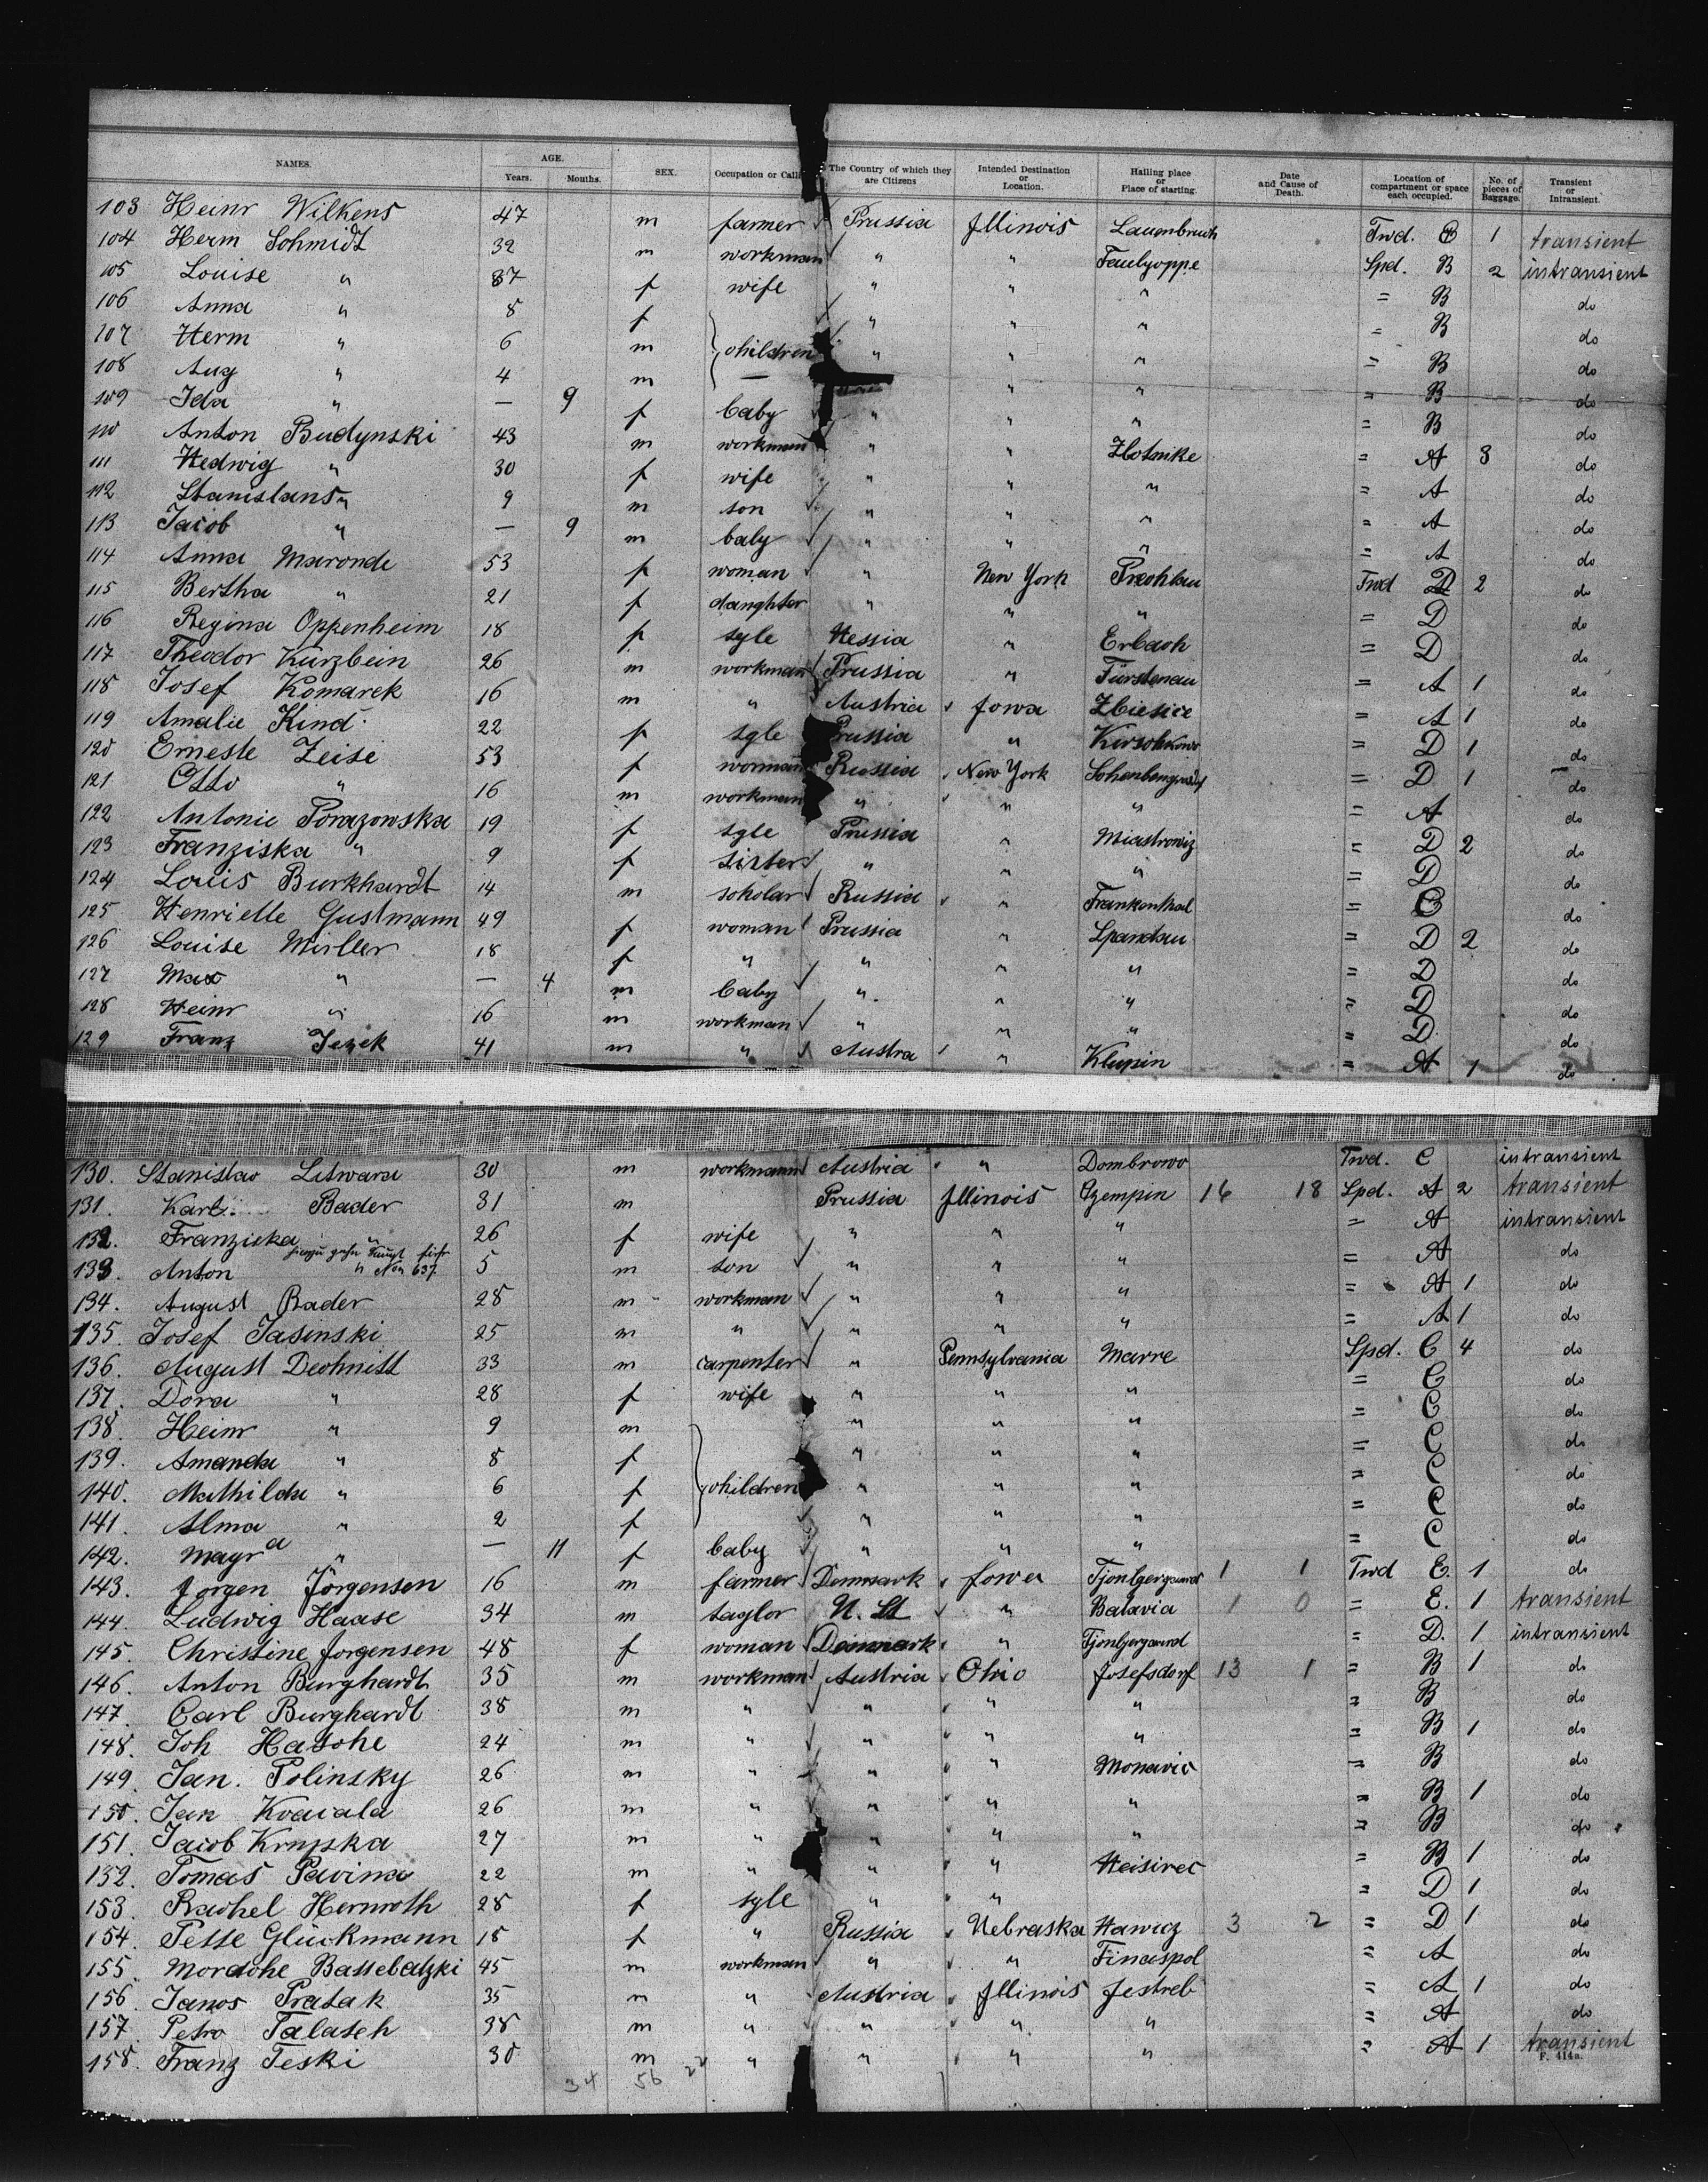 NAMES. AGE. Years. Months. SEX. Occupation or Calli The Country of which they are Citizens Intended Destination or Location. Hailing place or Place of starting. Date and Cause of Death. Location of compartment or space each occupied. No. of pieces of Baggage. Transient or Intransient.
103 Heinr Wilkens 47 m farmer Prussia Illinois Lauenbruch Twd. 1 transient
104 Herm Schmidt 32 m workman " " Spd. B 2 intransient
105 Louise " 37 f wife " " " = B do
106 Anna " 8 f " " " = B do
107 Herm " 6 m children " " " = B do
108 Aug " 4 m — " " = B do
109 Ida " — 9 f baby " " " = B do
110 Anton Budynski 43 m workman " " Zlotnike = A 3 do
111 Hedwig " 30 f wife " " " = A do
112 Stanislaus " 9 m son " " " = A do
113 Jacob " — 9 m baby " " " = A do
114 Anna Maronde 53 f woman " New York Prechlau Twd D 2 do
115 Bertha " 21 f daughter " " " = D do
116 Regina Oppenheim 18 f sgle Hessia " Erbach = D do
117 Theodor Kurzbein 26 m workman Prussia " Fürstenau = A 1 do
118 Josef Komarek 16 m " Austria Iowa Zbiesice = A 1 do
119 Amalie Kind 22 f sgle Prussia " = D 1 do
120 Erneste Zeise 53 f woman Russia New York = D 1 do
121 Otto " 16 m workman " " " = A do
122 Antonie Porazowska 19 f sgle Prussia " = D 2 do
123 Franziska " 9 f sister " " " = D do
124 Louis Burkhardt 14 m scholar Russia " Frankenthal = C do
125 Henriette Gustmann 49 f woman Prussia " Spandau = D 2 do
126 Louise Müller 18 f " " " " = D do
127 Max " — 4 m baby " " " = D do
128 Heinr " 16 m workman " " " = D do
129 Franz Jezek 41 m " Austra " Klupin = A 1 do
130. Stanislaw Litwara 30 m workmann Austria " Dombrowo Twd. C intransient
131. Karl Bader 31 m Prussia Illinois Czempin 16 18 Spd. A 2 transient
132. Franziska " 26 f wife " " " = A intransient
133. Anton " 5 m son " " " = A do
134. August Bader 28 m workman " " " = A 1 do
135. Josef Jasinski 25 m " " " " = A 1 do
136. August Dechnitt 33 m carpenter " Pennsylvania Marre Spd. C 4 do
137. Dora " 28 f wife " " " = C do
138. Heinr " 9 m " " " = C do
139. Amanda " 8 f " " " = C do
140. Mathilda " 6 f children " " " = C do
141. Alma " 2 f " " " = C do
142. Mayra " — 11 f baby " " " = C do
143. Jorgen Jörgensen 16 m farmer Denmark Iowa 1 1 Twd E. 1 do
144. Ludwig Haase 34 m taylor U. St " Batavia 1 0 = E. 1 transient
145. Christine Jorgensen 48 f woman Denmark " = D. 1 intransient
146. Anton Burghardt 35 m workman Austria Ohio Josefsdorf 13 1 = B 1 do
147. Carl Burghardt 38 m " " " " = B do
148. Joh Hasche 24 m " " " " = B 1 do
149. Jan. Polinsky 26 m " " " Monavic = B do
150. Jan Kvaiala 26 m " " " " = B 1 do
151. Jacob Krupska 27 m " " " " = B do
152. Tomas Pavina 22 m " " " Heisirec = B 1 do
153. Rachel Hernroth 28 f sgle " " = D 1 do
154. Pesse Glückmann 18 f " Russia Nebraska 3 2 = D 1 do
155. Mordche Bassebatzki 45 m workman " " = A do
156. Janos Pratak 35 m " Austria Illinois Jestreb = A 1 do
157. Petro Talatseh 38 m " " " " = A do
158. Franz Teski 30 m " " " " = A 1 transient
F. 414a.
34 56 22